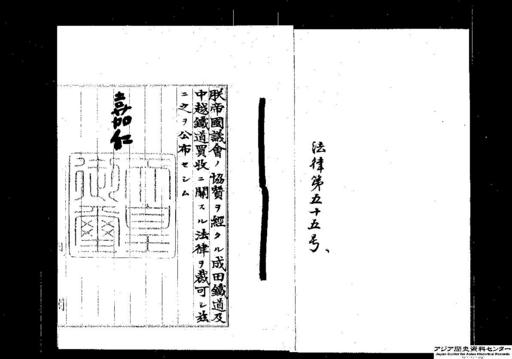 法律第五十五号、
朕帝國議會ノ協贊ヲ經タル成田鐵道及
中越鐵道買收ニ關スル法律ヲ裁可シ茲
ニ之ヲ公布セシム
嘉仁
天皇
御璽
アジア歴史資料センター
Japan Center for Asian Historical Records